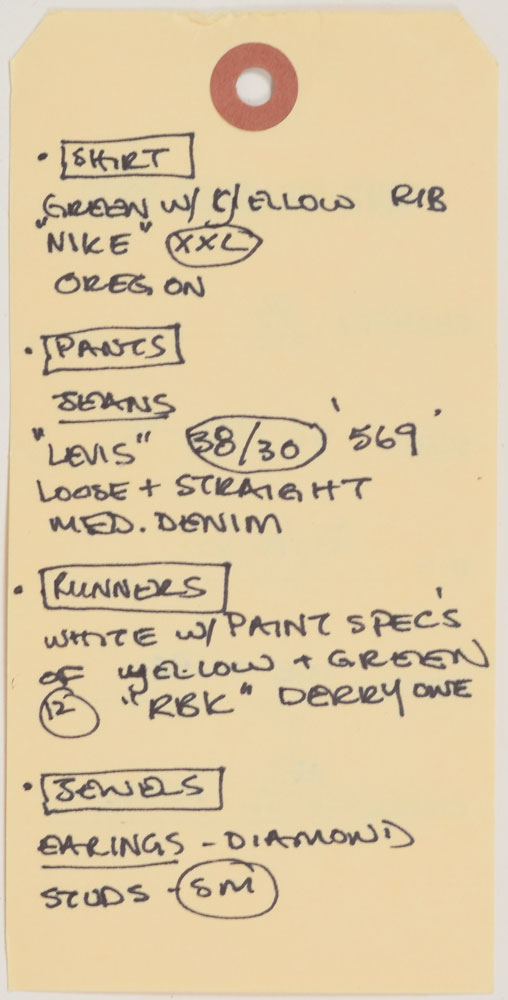 • SHIRT
GREEN W/ YELLOW RIB
"NIKE" XXL
OREGON
• PANTS
JEANS
"LEVIS" 38/30 '569'
LOOSE + STRAIGHT
MED. DENIM
• RUNNERS
WHITE W/ PAINT SPEC'S
OF YELLOW + GREEN
12 "RBK" DERRY ONE
• JEWELS
EARINGS - DIAMOND
STUDS - SM